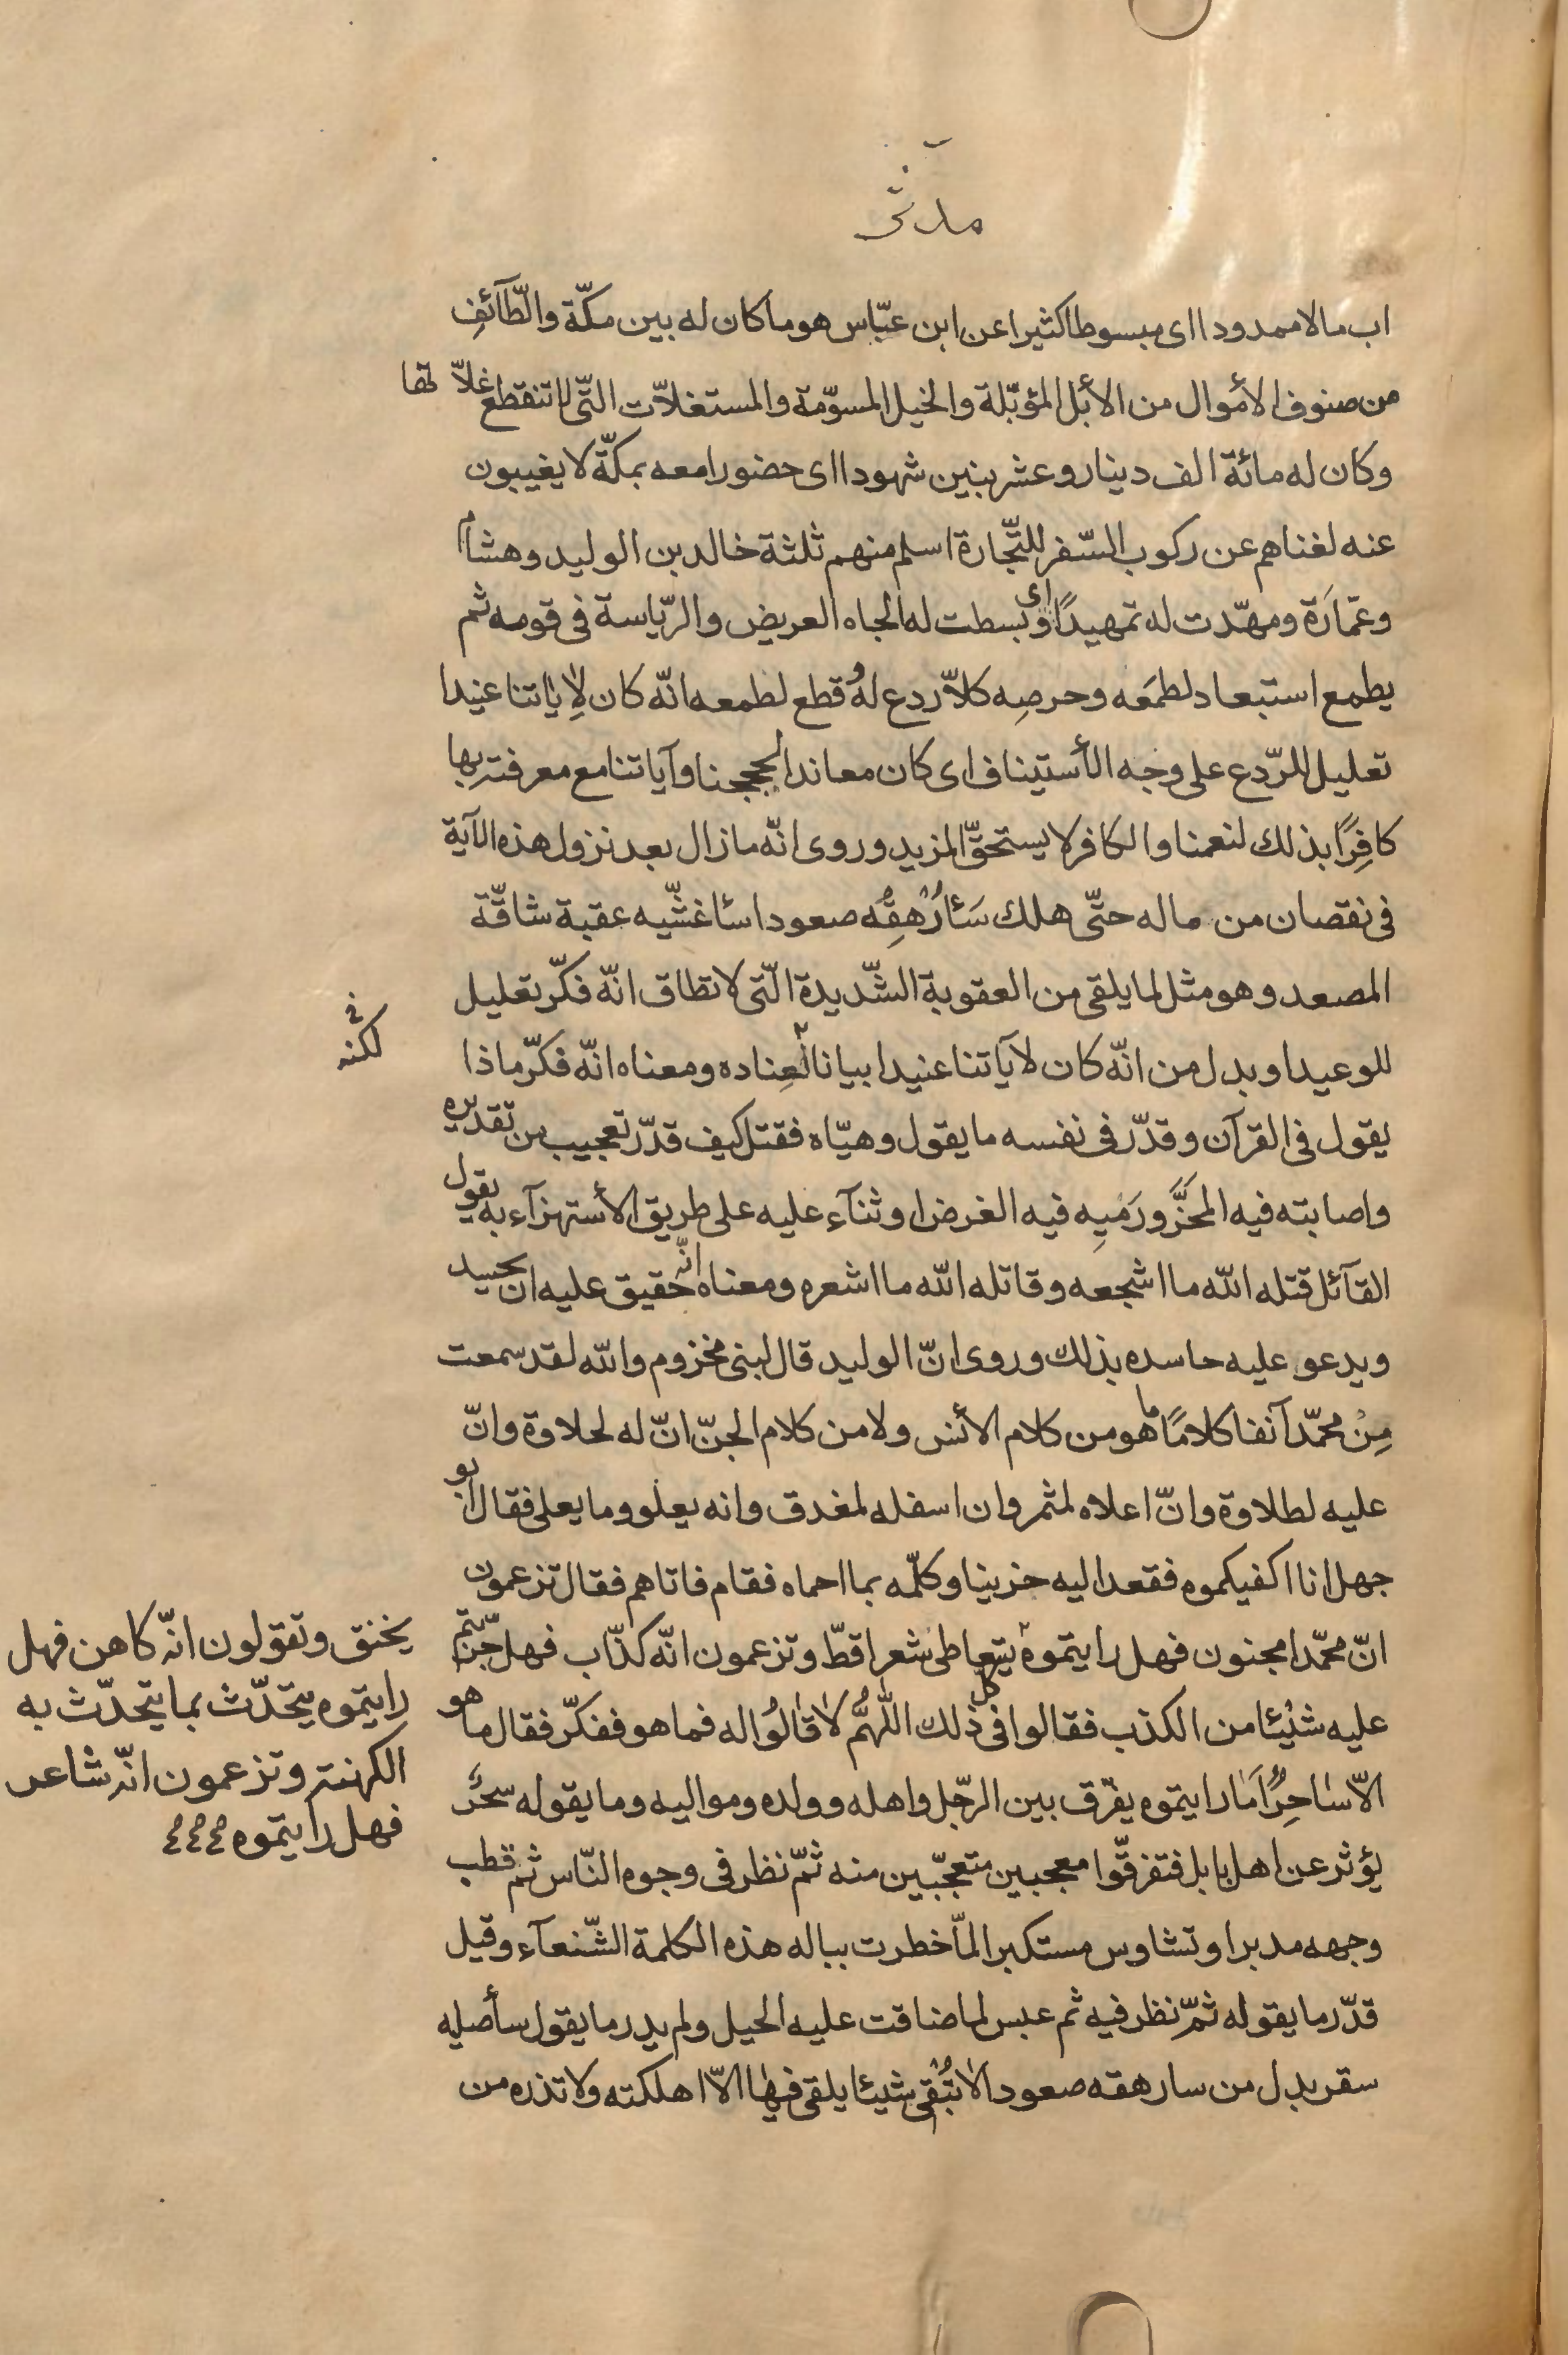 مدثر
اب مالا ممدودا اى مبسوطا كثيرا عن ابن عبّاس هو ما كان له بين مكّة والطّآئفِ
من صنوف الأموال من الأبل المؤبّلة والخيل المسوّمة والمستغلاّت التّى لا تنقطع غلاّتها
وكان له مائة الف دينار وعشر بنين شهودا اى حضورا معه بمكّة لا يغيبون
عنه لغناهم عن ركوب السّفر للتّجارة اسلم منهم ثلثة خالد بن الوليد وهشام
وعمّارَة ومهّدت له تمهيدًا اى وبسطت له الجاه العريض والرّياسة فى قومه ثم
يطمع استبعاد لطمَعه وحرصِه كلاّ ردع لهُ وقطع لطمعه انّه كان لِاٰياتنا عنيدا
تعليل للرّدع على وجه الأستيناف اى كان معاندا لحججنا وآياتنا مع معرفته بها
كافِرًا بذلك لنعمنا والكافر لا يستحقّ المزيد وروى انّه ما زال بعد نزول هذه الآية
فى نقصان من ماله حتّى هلك سَئارُهِقُه صعودا سئاغشّيه عقبة شاقّة
المصعد وهو مثل لما يلقى من العقوبة الشّديدة الّتى لا تطاق انّه فكّر تعليل
للوعيد او بدل من انّه كان لآياتنا عنيدا بيانا لعِناده ومعناه انّه فكّر ماذا
يقول فى القرآن وقدّر فى نفسه ما يقول وهيّاه فقتل كيف قدّر تعجيب من تقديره
واصابته فيه المحَزَّ ورَميِه فيه الغرض او ثنآء عليه على طريق الأستهزآء به يقول
القآئل قتله الله ما اشجعه وقاتله الله ما اشعره ومعناه انّه حقيق عليه ان يحسد
ويدعو عليه حاسده بذلك وروى انّ الوليد قال لبنى مخزوم والله لقد سمعت
مِنْ محمّد آنفا كلامًا ما هو من كلام الأنس ولا من كلام الجنّ انّ له لحلاوة وانّ
عليه لطلاوة وانّ اعلاه لمثمر وان اسفله لمغدق وانه يعلو وما يعلى فقال ابو
جهل انا اكفيكموه فقعد اليه حزينا وكلّمه بما احماه فقام فاتاهم فقال تزعمون
انّ محمّدا مجنون فهل رايتموه يتعاطى شعرا قطّ وتزعمون انّه كذّاب فهل جرّبتم
عليه شئيا من الكذب فقالوا فى كل ذلك اللّهُمَّ لا قالُوا له فما هو ففكّر فقال ما هو
الاّ ساحِرٌ اَمَا رايتموه يفرّق بين الرجّل واهله وولده ومواليه وما يقوله سحرٌ
يؤثر عن اهل بابل فتفرقّوا معجبين متعجّبين منه ثمّ نظر فى وجوه النّاس ثم قطب
وجهه مدبرا وتشاوس مستكبرا لمّا خطرت بباله هذه الكلمة الشّنعآء وقيل
قدّر ما يقوله ثمّ نظر فيه ثم عبس لما ضاقت عليه الحيل ولم يدر ما يقول سأصليه
سقر بدل من سارهقه صعودا لا تُبْقى شيئا يلقى فيها الاّ اهلكته ولا تذره من
لكنه
يخنق وتقولون انّه كاهن فهل
رايتموه يتحدّث بما يتحدّث به
الكهنة وتزعمون انّه شاعر
فهل رايتموه